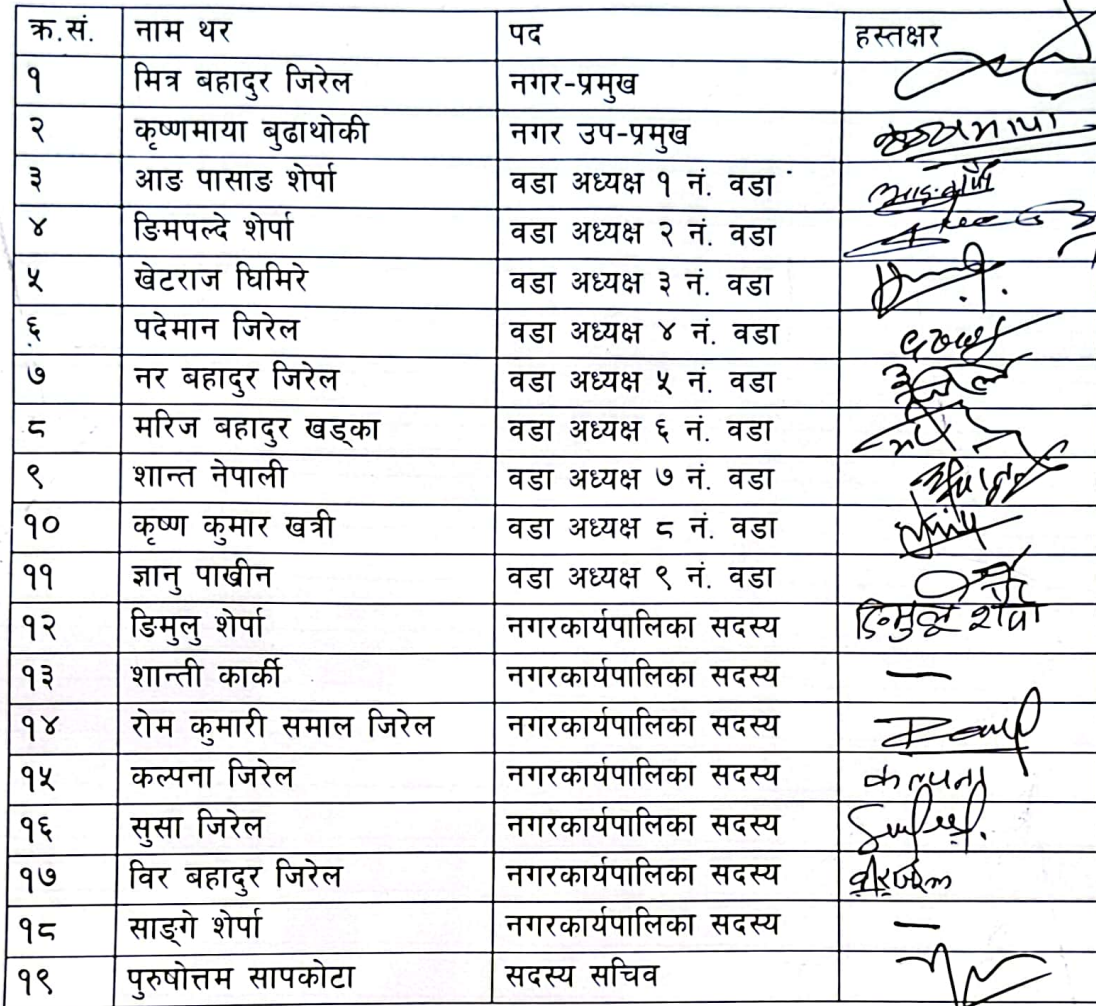 क्र.सं. नाम थर पद हस्तक्षर
१ मित्र बहादुर जिरेल नगर-प्रमुख
२ कृष्णमाया बुढाथोकी नगर उप-प्रमुख कृष्णमाया
३ आङ पासाङ शेर्पा वडा अध्यक्ष १ नं. वडा
४ ङिमपल्दे शेर्पा वडा अध्यक्ष २ नं. वडा
५ खेटराज घिमिरे वडा अध्यक्ष ३ नं. वडा
६ पदेमान जिरेल वडा अध्यक्ष ४ नं. वडा
७ नर बहादुर जिरेल वडा अध्यक्ष ५ नं. वडा
८ मरिज बहादुर खड्का वडा अध्यक्ष ६ नं. वडा
९ शान्त नेपाली वडा अध्यक्ष ७ नं. वडा
१० कृष्ण कुमार खत्री वडा अध्यक्ष ८ नं. वडा
११ ज्ञानु पाखीन वडा अध्यक्ष ९ नं. वडा
१२ ङिमुलु शेर्पा नगरकार्यपालिका सदस्य ङिमुलु शेर्पा
१३ शान्ती कार्की नगरकार्यपालिका सदस्य —
१४ रोम कुमारी समाल जिरेल नगरकार्यपालिका सदस्य
१५ कल्पना जिरेल नगरकार्यपालिका सदस्य कल्पना
१६ सुसा जिरेल नगरकार्यपालिका सदस्य
१७ विर बहादुर जिरेल नगरकार्यपालिका सदस्य
१८ साङ्गे शेर्पा नगरकार्यपालिका सदस्य —
१९ पुरुषोत्तम सापकोटा सदस्य सचिव